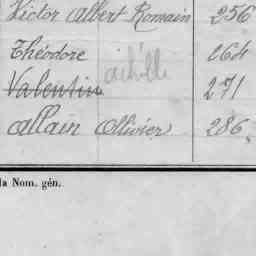 Victor Albert Romain 256
Théodore 264
achille
Valentin 271
Allain Ollivier 286
la Nom. gén.